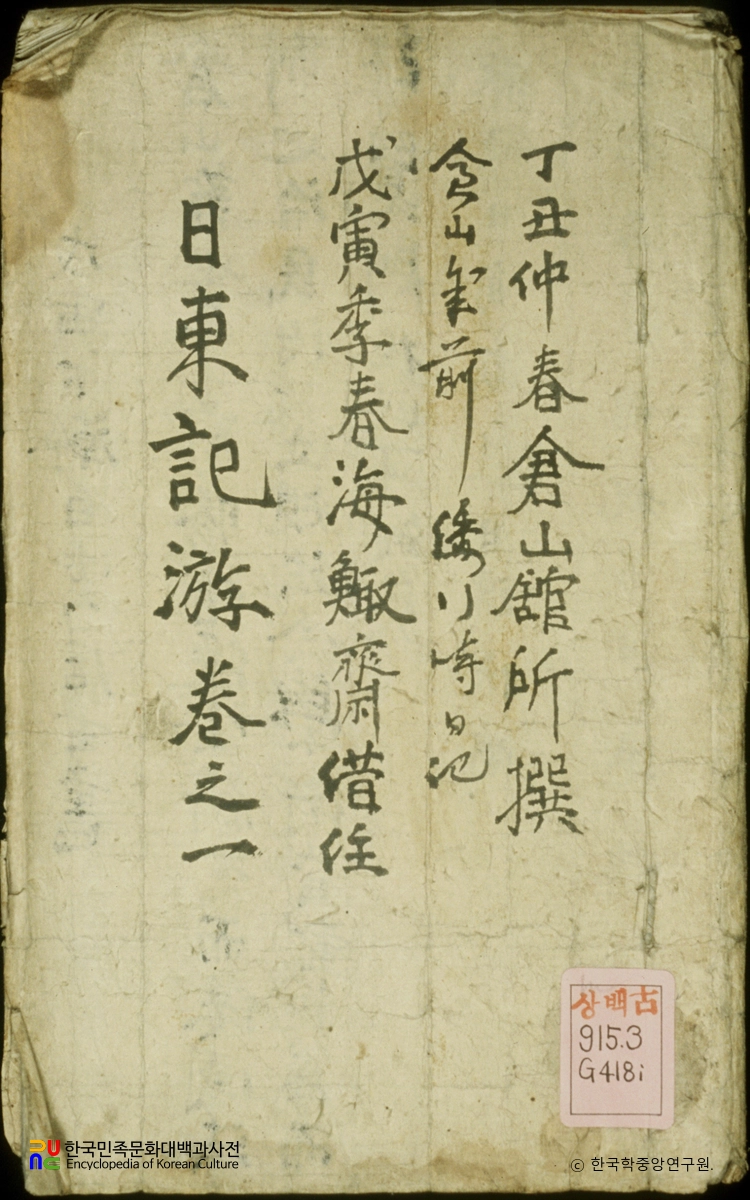 丁丑仲春倉山館所撰
倉山年前倭行時日記
戊寅季春海鯫齋借住
日東記游卷之一
상백古
915.3
G418i
한국민족문화대백과사전
Encyclopedia of Korean Culture
© 한국학중앙연구원.